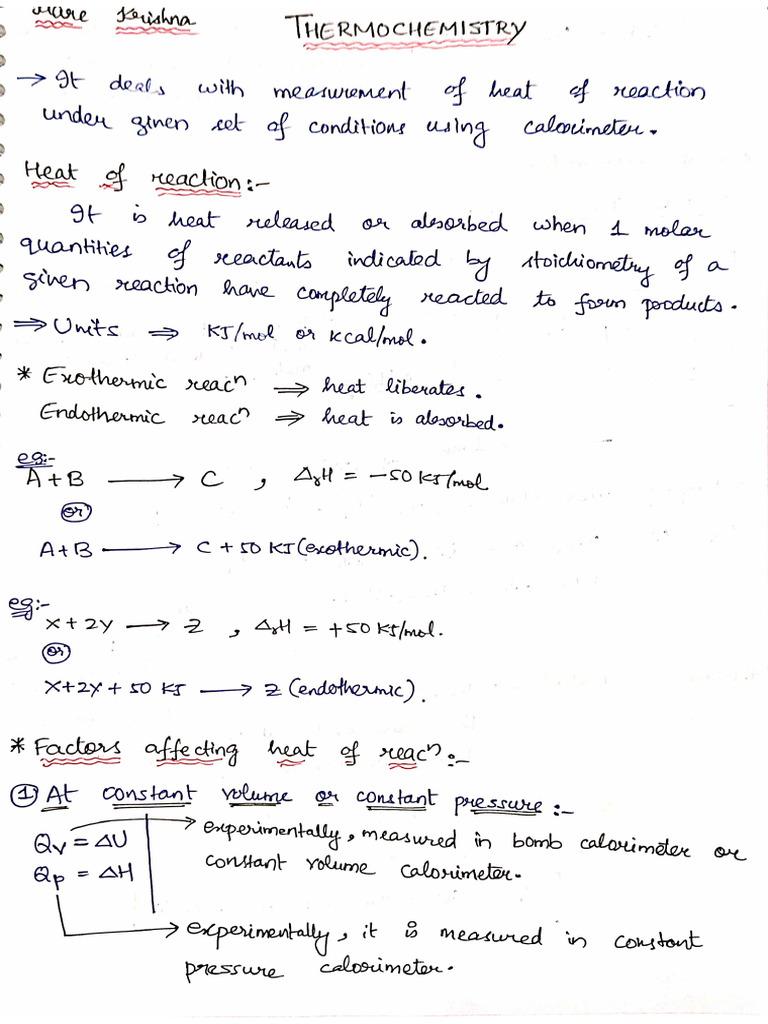 Hare Krishna
THERMOCHEMISTRY
→ It deals with measurement of heat of reaction
under given set of conditions using calorimeter.
Heat of reaction:-
It is heat released or absorbed when 1 molar
quantities of reactants indicated by stoichiometry of a
given reaction have completely reacted to form products.
⇒ Units ⇒ KJ/mol or kcal/mol.
* Exothermic reacⁿ ⇒ heat liberates.
Endothermic reacⁿ ⇒ heat is absorbed.
eg:-
A + B ⟶ C , ΔrH = -50 KJ/mol
or
A + B ⟶ C + 50 KJ (exothermic).
eg:-
X + 2Y ⟶ Z , ΔrH = +50 KJ/mol.
or
X + 2Y + 50 KJ ⟶ Z (endothermic).
* Factors affecting heat of reacⁿ:-
① At constant volume or constant pressure:-
Qv = ΔU → experimentally, measured in bomb calorimeter or
constant volume calorimeter.
Qp = ΔH → experimentally, it is measured in constant
pressure calorimeter.